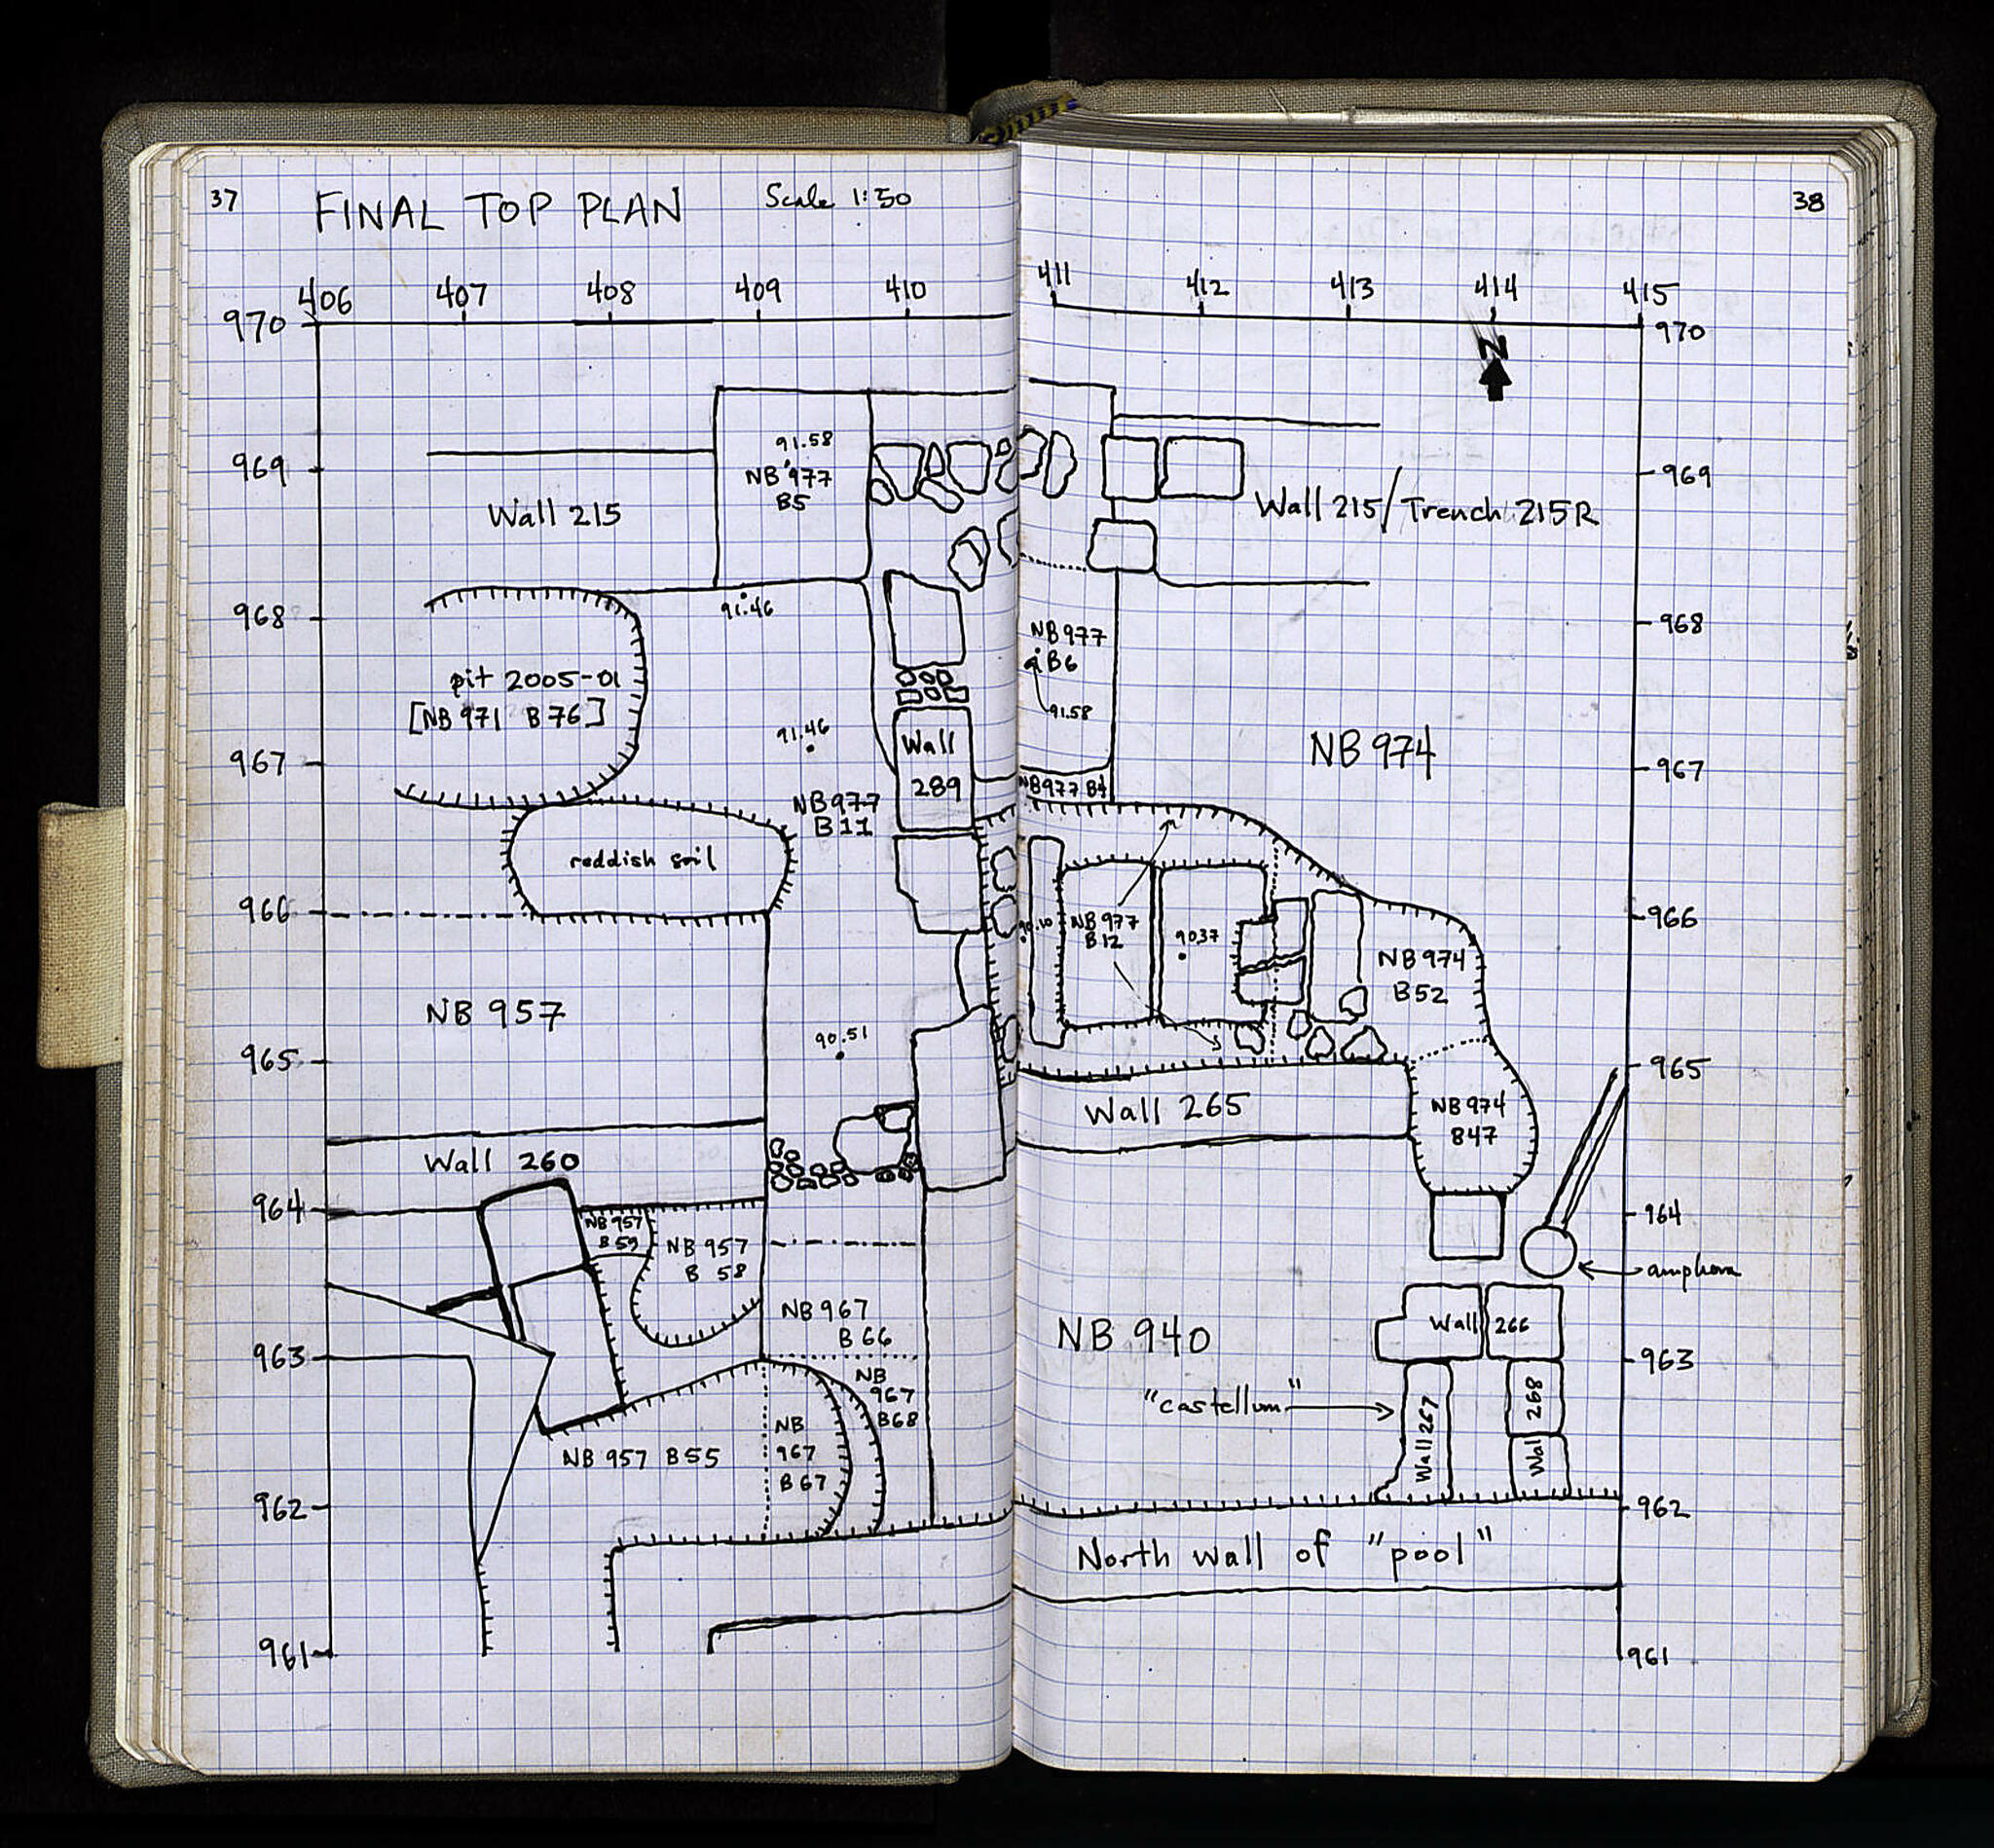 37
FINAL TOP PLAN Scale 1:50
406 407 408 409 410
970
969
968
967
966
965
964
963
962
961
91.58
NB 977
B5
Wall 215
91.46
pit 2005-01
[NB 971 B 76]
91.46
Wall
289
NB 977
B11
reddish soil
NB 957
90.51
Wall 260
NB 957
B 59
NB 957
B 58
NB 967
B 66
NB
967
B68
NB
967
B67
NB 957 B55
38
411 412 413 414 415
970
N
969
Wall 215/Trench 215R
968
NB 977
B6
91.58
NB 974
967
NB 977 B4
966
90.10
NB 977
B12
90.37
NB 974
B52
965
Wall 265
NB 974
B47
964
amphora
NB 940
Wall 266
963
"castellum"
Wall 267
Wal 268
962
North wall of "pool"
961